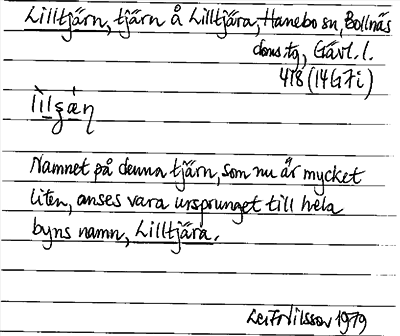 Lilltjärn, tjärn å Lilltjära, Hanebo sn, Bollnäs
doms.tg, Gävl. l.
418 (14G7i)
Namnet på denna tjärn, som nu är mycket
liten, anses vara ursprunget till hela
byns namn, Lilltjära.
Leif Nilsson 1979